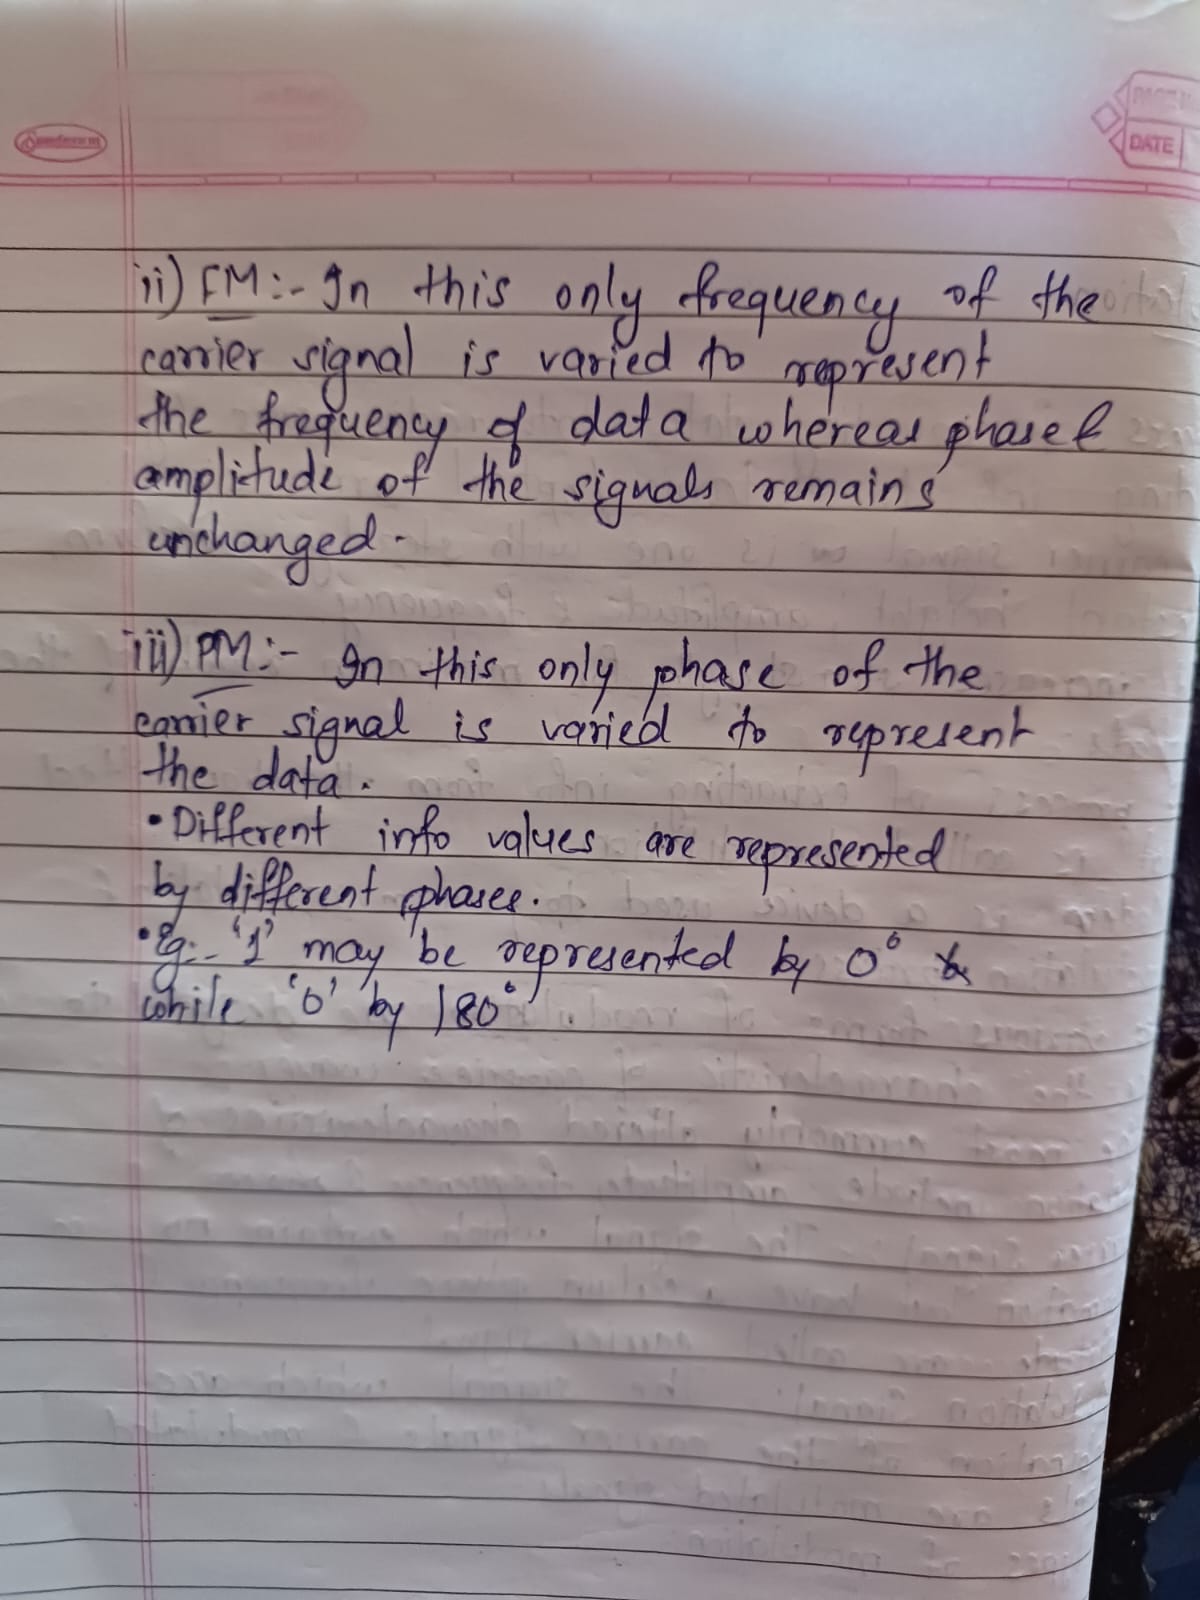 DATE
ii) FM:- In this only frequency of the
carrier signal is varied to represent
the frequency of data whereas phase &
amplitude of the signals remains
unchanged.
iii) PM:- In this only phase of the
carrier signal is varied to represent
the data.
• Different info values are represented
by different phases.
• Eg:- '1' may be represented by 0°
while '0' by 180°.